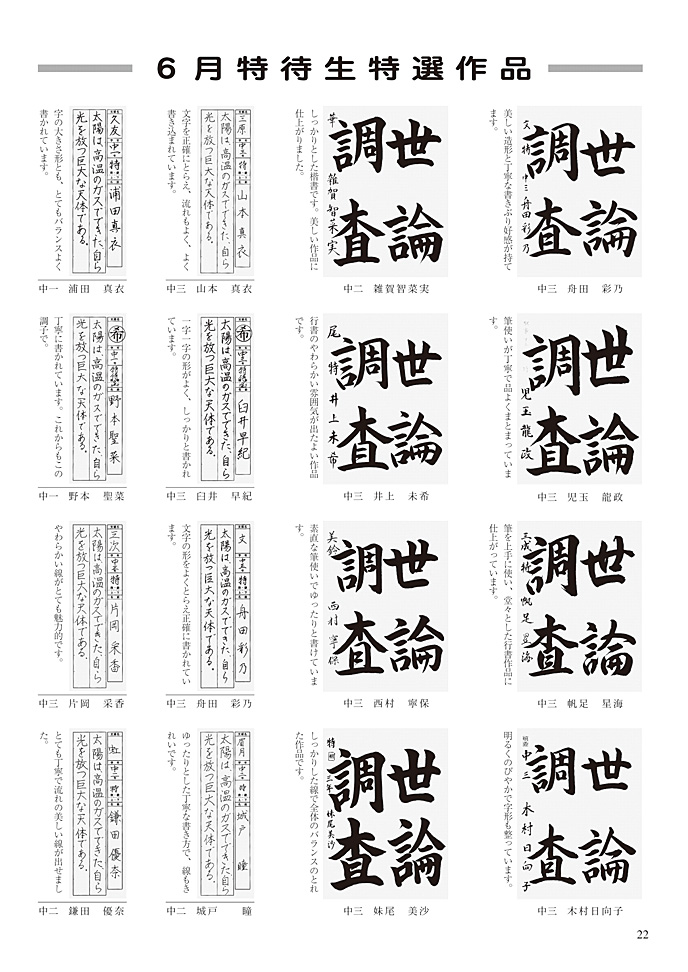 6月特待生特選作品
世論
調査
文 特 中三 舟田彩乃
美しい造形と丁寧な書きぶり好感が持て
ます。
中三 舟田 彩乃
世論
調査
華 雑賀智菜実
しっかりとした楷書です。美しい作品に
仕上がりました。
中二 雑賀智菜実
三原 中三 特 山本真衣
太陽は、高温のガスでできた、自ら
光を放つ巨大な天体である。
文字を正確にとらえ、流れもよく、よく
書き込まれています。
中三 山本 真衣
久友 中一 特 浦田真衣
太陽は、高温のガスでできた、自ら
光を放つ巨大な天体である。
字の大きさ形とも、とてもバランスよく
書かれています。
中一 浦田 真衣
世論
調査
児玉龍政
筆使いが丁寧で品よくまとまっていま
す。
中三 児玉 龍政
世論
調査
尾 特 井上未希
行書のやわらかい雰囲気が出たよい作品
です。
中三 井上 未希
希 中三 特待生 臼井早紀
太陽は、高温のガスでできた、自ら
光を放つ巨大な天体である。
一字一字の形がよく、しっかりと書かれ
ています。
中三 臼井 早紀
希 中一 特待生 野本聖菜
太陽は、高温のガスでできた、自ら
光を放つ巨大な天体である。
丁寧に書かれています。これからもこの
調子で。
中一 野本 聖菜
世論
調査
三成 特 帆足星海
筆を上手に使い、堂々とした行書作品に
仕上がっています。
中三 帆足 星海
世論
調査
美鈴 西村寧保
素直な筆使いでゆったりと書けていま
す。
中三 西村 寧保
文 中三 特 舟田彩乃
太陽は、高温のガスでできた、自ら
光を放つ巨大な天体である。
文字の形をよくとらえ正確に書かれてい
ます。
中三 舟田 彩乃
三次 中三 特 片岡采香
太陽は、高温のガスでできた、自ら
光を放つ巨大な天体である。
やわらかい線がとても魅力的です。
中三 片岡 采香
世論
調査
中三 木村日向子
明るくのびやかで字形も整っています。
中三 木村日向子
世論
調査
特 三年 妹尾美沙
しっかりした線で全体のバランスのとれ
た作品です。
中三 妹尾 美沙
眉月 中二 特 城戸瞳
太陽は、高温のガスでできた、自ら
光を放つ巨大な天体である。
ゆったりとした丁寧な書き方で、線もき
れいです。
中二 城戸 瞳
虹 中二 特 鎌田優奈
太陽は、高温のガスでできた、自ら
光を放つ巨大な天体である。
とても丁寧で流れの美しい線が出せまし
た。
中二 鎌田 優奈
22